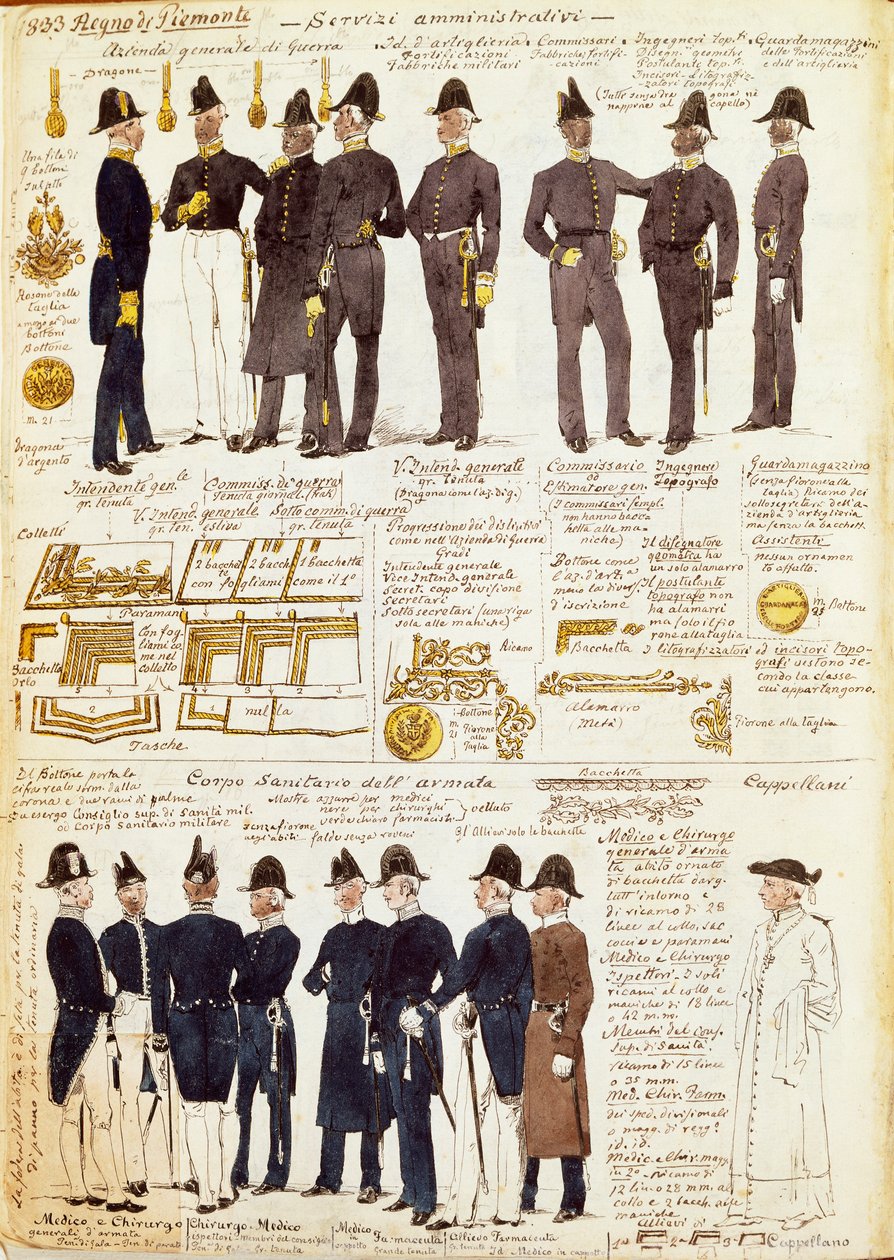 1833 Regno di Piemonte — Servizi amministrativi —
Azienda generale di Guerra
Id. d'artiglieria
Fortificazioni
Fabbriche militari
Commissari
Fabbriche fortifi-
cazioni
Ingegneri top.fi
Disegn.ri geometri
Postulante top.fi
Incisori-Litografiz-
zatori topografi
(Tutti senza dragona nè
nappine al capello)
Guardamagazzini
delle fortificazioni
e dell'artiglieria
— Dragone —
Una fila di
9 bottoni
sul petto
Rosone della
taglia
a mezzo ai due
bottoni
Bottone
m. 21
Dragona
d'argento
Intendente gen.le
gr. tenuta
V. Intend. generale
gr. ten. estiva
Commiss. di guerra
Tenuta giornal. (frak)
Sotto comm. di guerra
gr. tenuta
V. Intend. generale
gr. tenuta
(Dragona come l'az. di g.)
Commissario
od
Estimatore gen.
(I commissari sempl.
non hanno bacc-
hetta alle ma-
niche)
Ingegnere
Topografo
Guardamagazzino
(senza fiorone alla
taglia) Ricamo dei
sottosegretari dell'a-
zienda d'artiglieria
ma senza la bacchett.
Assistenti
nessun ornamen-
to affatto.
Colletti
2 bacchette
con fogliami
2 bacch
1 bacchetta
come il 1°
Paramani
Con fog-
liami co
me nel
colletto
Bacchetta
orlo
5
4
3
2
2
1
nulla
Tasche
Progressione dei distintivi
come nell'Azienda di Guerra
Gradi
Intendente generale
Vice Intend. generale
Secret. capo divisione
Secretari
Sotto secretari (una riga
sola alle maniche)
Ricamo
Bottone
m.
21
Fiorone
alla
Taglia
Bottone come
l'az. d'arti.a
meno la divers.
d'iscrizione
Bacchetta
Il disegnatore
geometra ha
un solo alamarro
Il postulante
topografo non
ha alamarri
ma solo il fio
rone alla taglia
I litografizzatori ed incisori topo-
grafi vestono se-
condo la classe
cui appartengono.
m.
25
Bottone
Alamarro
(Metà)
Fiorone alla taglia
Il Bottone porta la
cifra reale sorm. dalla
corona e due rami di palme
Su esergo Consiglio sup. di Sanità mil.
o Corpo Sanitario militare
Corpo Sanitario dell'armata
Mostre azzurre per medici
nere per chirurghi
verde chiaro farmacisti
velluto
Senza fiorone
agli abiti - falde senza roversi
Gl'Allievi solo le bacchette
Bacchetta
Cappellani
La fodera dell'abito è di seta per la tenuta di gala
di panno per la tenuta ordinaria
Medico e Chirurgo
generale d'arma
ta abito ornato
di bacchetta d'arg.
tutt'intorno e
di ricamo di 28
linee al collo, sac
coccie e paramani
Medico e Chirurgo
Ispettori. I soli
ricami al collo e
maniche di 18 linee
o 42 m.m.
Membri del cons.
sup. di Sanità.
ricamo di 15 linee
o 35 m.m.
Med. Chir. Farm.
dei sped. divisionali
o magg. di regg.o
id. id.
Medic. e Chir. magg.
in 2o - Ricamo di
12 lin o 28 m.m. al
collo e 2 bacch. alle
maniche
Allievi di
1a 2a 3a
Medico e Chirurgo
generali d'armata
Ten. di Gala - Ten. di parata
Chirurgo - Medico
ispettori membri del consiglio
Ten. di Gal - Gr. tenuta
Medico
in
cappotto
Farmaceuta
Grande tenuta
Allievo Farmaceuta
Gr. tenuta Id. Medico in cappotto
Cappellano